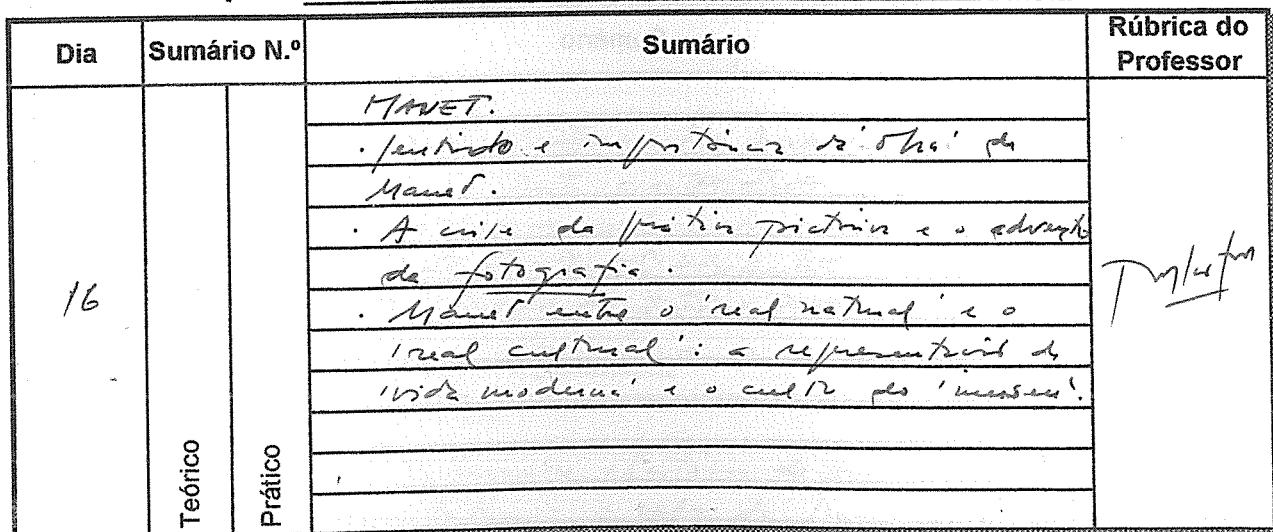 Dia Sumário N.º Sumário Rúbrica do Professor
16
Teórico
Prático
MANET.
. Sentido e importância da 'obra' de
Manet.
. A crise da prática pictórica e o advento
da fotografia.
. Manet entre o 'real natural' e o
'real cultural': a representação da
'vida moderna' e o culto do 'museu'.